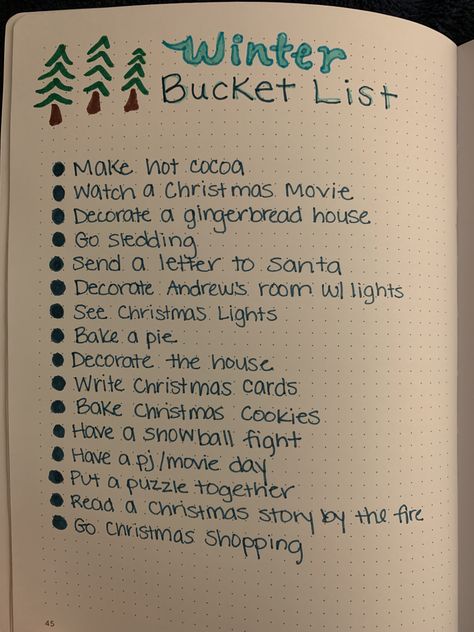 Winter
Bucket List
Make hot cocoa
Watch a Christmas Movie
Decorate a gingerbread house
Go sledding
Send a letter to Santa
Decorate Andrew's room w/ lights
See Christmas Lights
Bake a pie
Decorate the house
Write Christmas cards
Bake Christmas Cookies
Have a snowball fight
Have a pj/movie day
Put a puzzle together
Read a Christmas story by the fire
Go Christmas Shopping
45